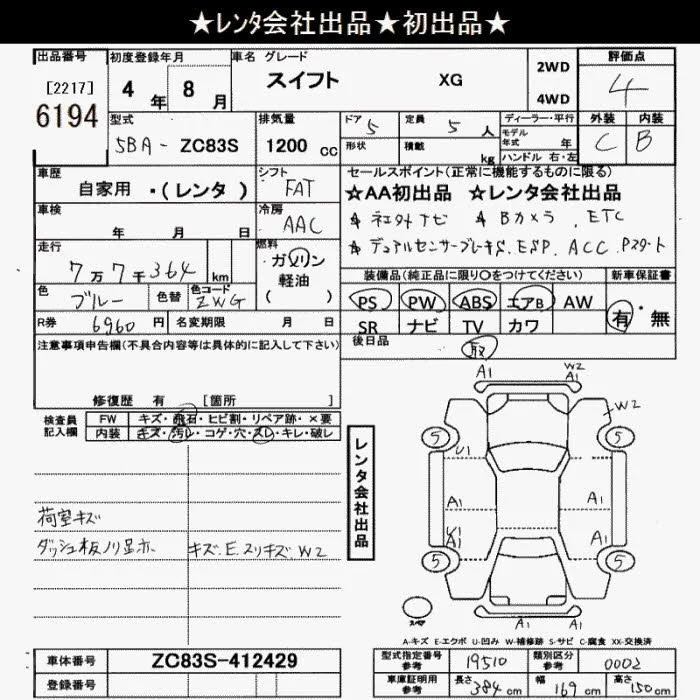 ★レンタ会社出品★初出品★
出品番号 初度登録年月 車名 グレード 評価点
[2217] 4年 8月 スイフト XG 2WD 4
6194 4WD
型式 排気量 ドア 5 定員 5人 ディーラー・平行 外装 内装
5BA- ZC83S 1200 cc 形状 積載 kg モデル年式 年 C B
ハンドル 右・左
車歴 シフト セールスポイント(正常に機能するものに限る)
自家用 ・(レンタ ) FAT ☆AA初出品 ☆レンタ会社出品
車検 冷房 ☆社外ナビ ☆Bカメラ、ETC
年 月 日 AAC ☆デュアルセンサーブレーキS、ESP、ACC、Pスタート
走行 燃料
7万7千364 km ガソリン 装備品(純正品に限り○をつけてください) 新車保証書
色 ブルー 色替 色コード ZWG 軽油 PS PW ABS エアB AW 有・無
( ) SR ナビ TV カワ
R券 6960 円 名変期限 月 日
注意事項申告欄(不具合内容等は具体的に記入して下さい) 後日品
取
修復歴 有 [箇所 ]
検査員記入欄 FW キズ・飛石・ヒビ割・リペア跡・×要
内装 キズ・汚レ・コゲ・穴・スレ・キレ・破レ
A1 W2
A1
W2
5 5
U1
A1 A1
A1
5 5
A1 A1
スペア
レンタ会社出品
荷室キズ
ダッシュ板ノリ显ホ キズ、E、スリキズ、W2
A-キズ E-エクボ U-凹み W-補修跡 S-サビ C-腐食 XX-交換済
車体番号 ZC83S-412429 型式指定番号 参考 19510 類別区分 参考 0002
登録番号 車庫証明用 参考 長さ 384 cm 幅 169 cm 高さ 150 cm